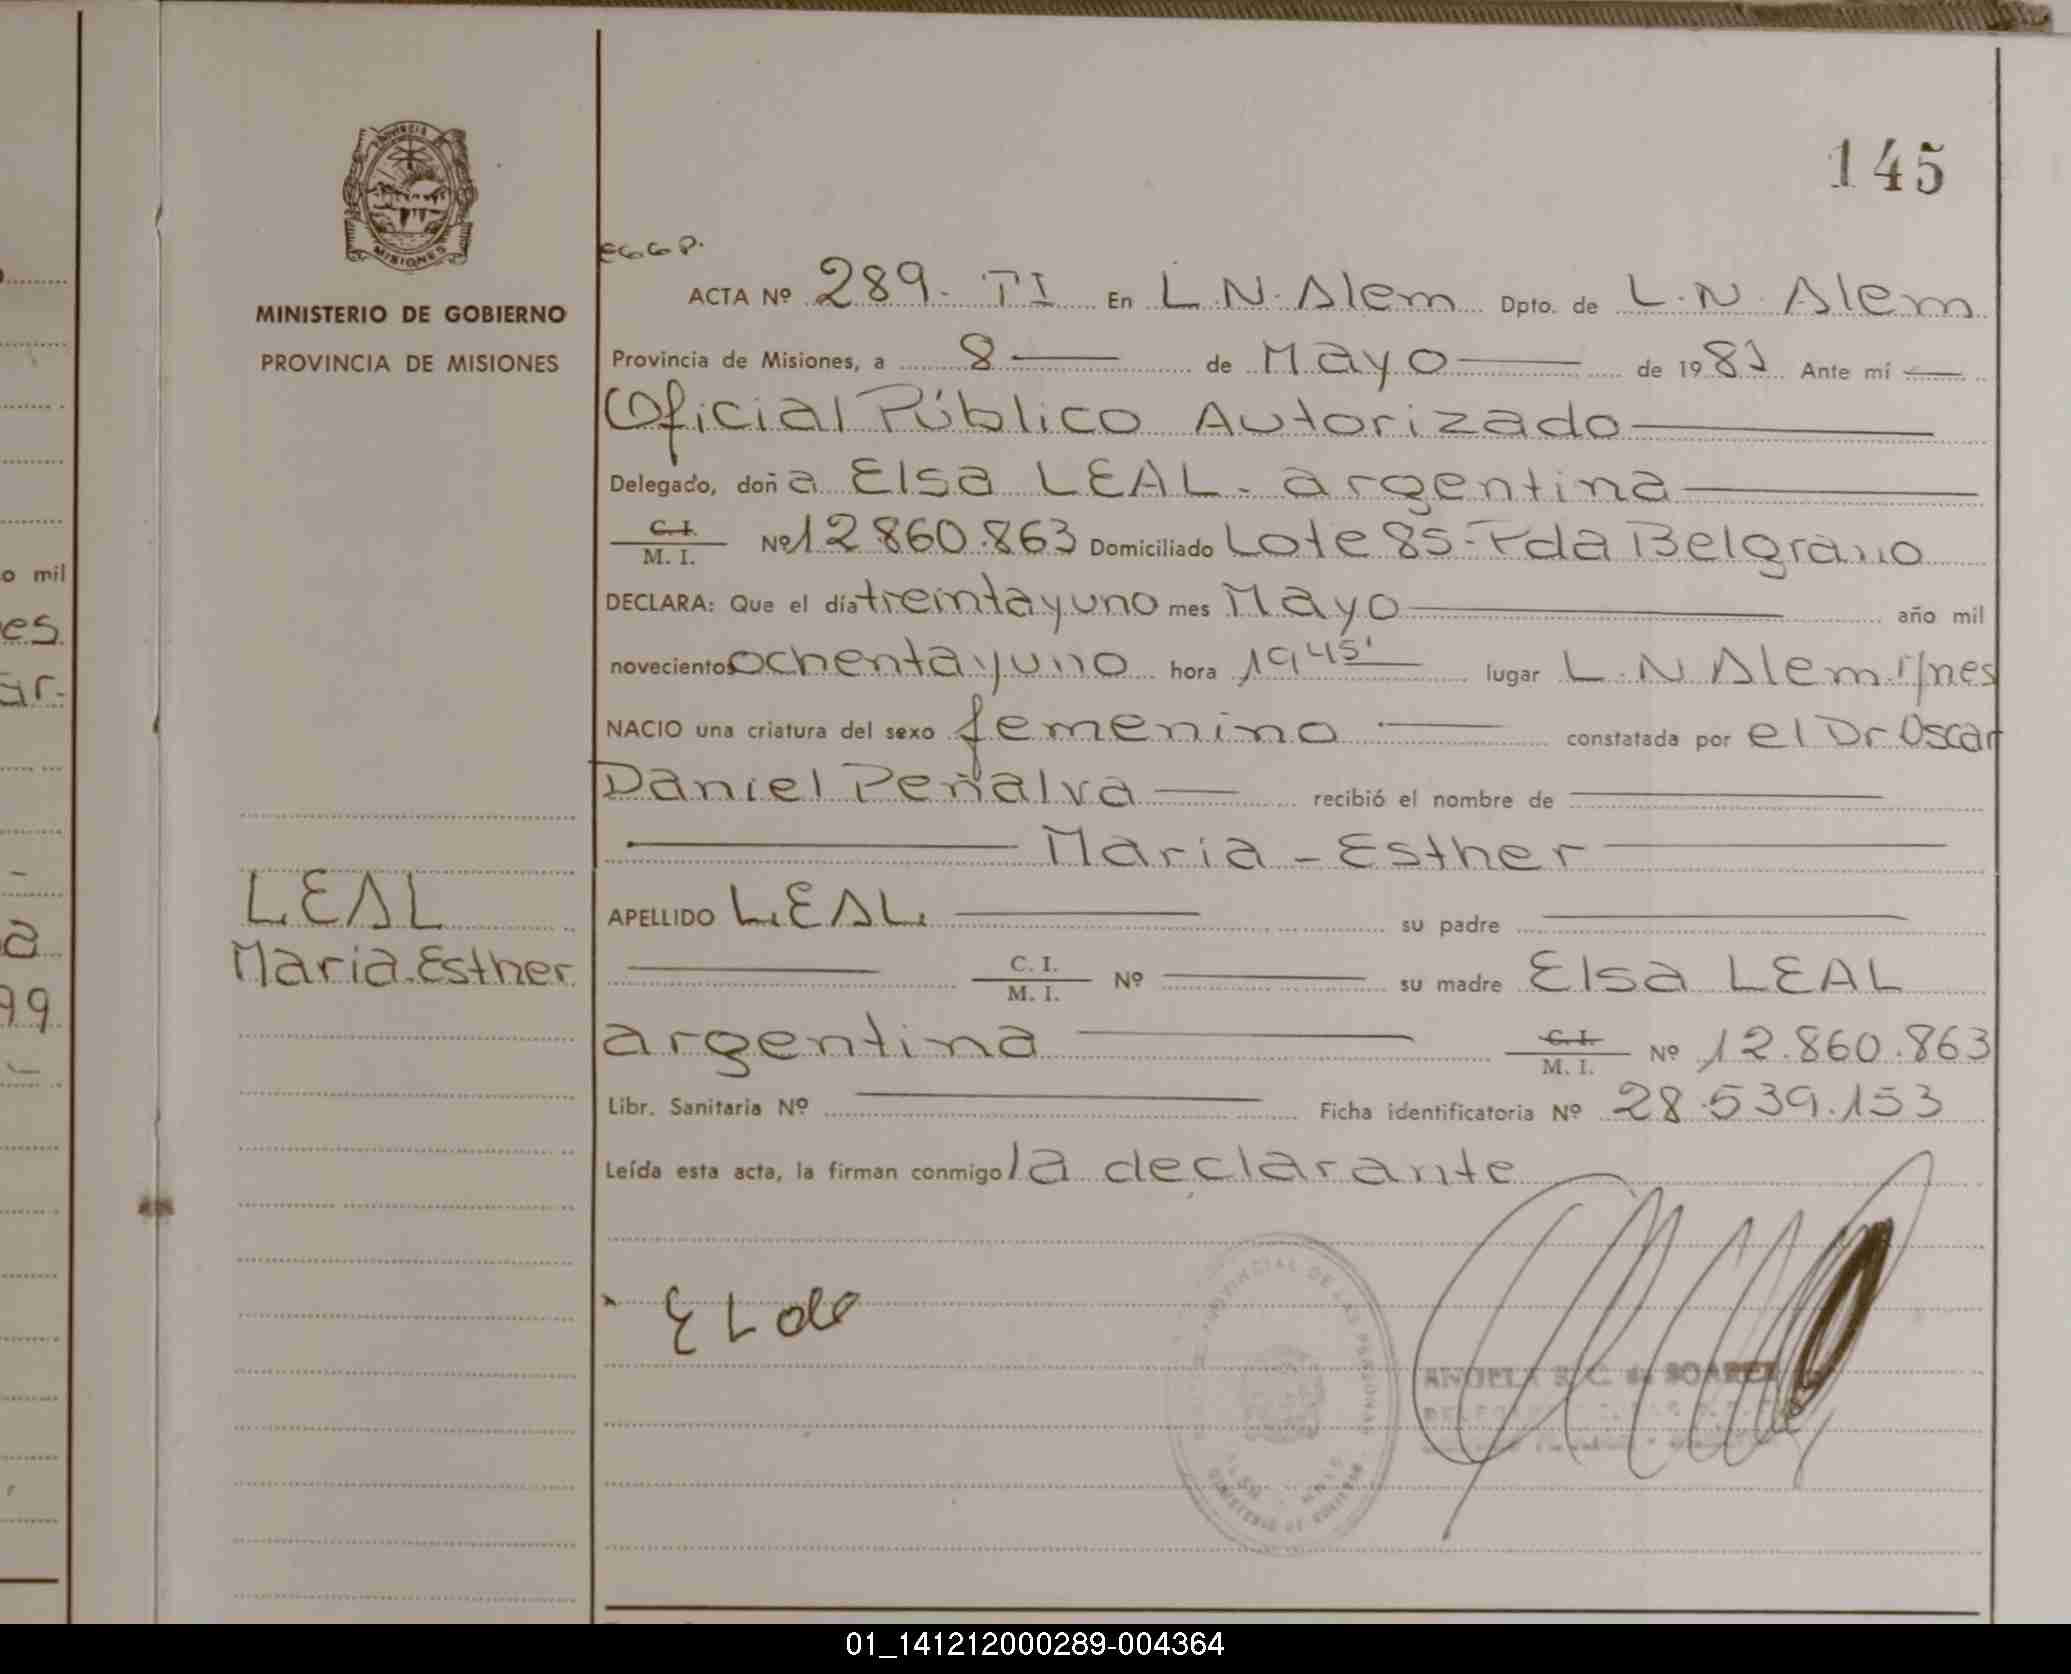 145
PROVINCIA
MISIONES
MINISTERIO DE GOBIERNO
PROVINCIA DE MISIONES
ACTA Nº 289. TI En L.N. Alem Dpto. de L.N. Alem
Provincia de Misiones, a 8 de Mayo de 1981 Ante mí
Oficial Público Autorizado
Delegado, doña Elsa LEAL. argentina
C. I.
M. I. Nº 12.860.863 Domiciliado Lote 85-Pda Belgrano
DECLARA: Que el día treintayuno mes Mayo año mil
novecientos ochentayuno hora 1945' lugar L.N Alem
NACIO una criatura del sexo femenino constatada por el Dr Oscar
Daniel Peñalva recibió el nombre de
Maria - Esther
LEAL
Maria.Esther
APELLIDO LEAL. su padre
C. I.
M. I. Nº su madre Elsa LEAL
argentina C. I.
M. I. Nº 12.860.863
Libr. Sanitaria Nº Ficha identificatoria Nº 28.539.153
Leída esta acta, la firman conmigo la declarante
PROVINCIAL DE LAS PERSONAS
MINISTERIO DE GOBIERNO
ANGELA R. C. de SOAREZ
o mil
es
ar.
a
99
01_141212000289-004364